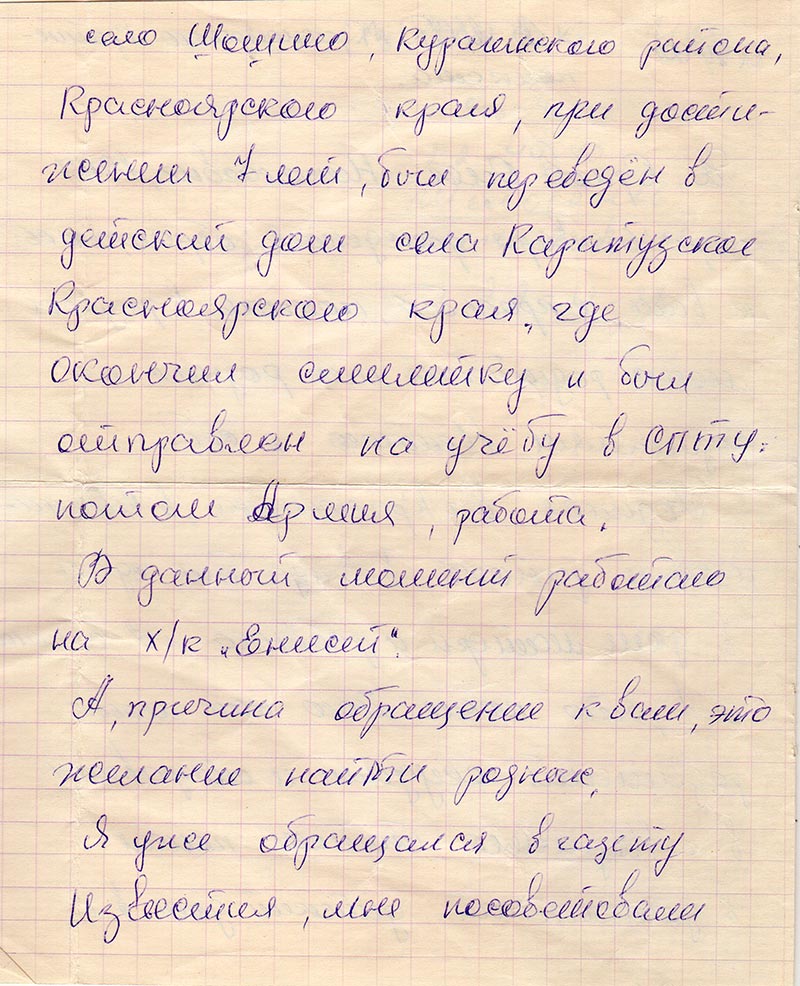 село Шошино, Курагинского района,
Красноярского края, при дости-
жении 7 лет, был переведён в
детский дом села Каратузское
Красноярского края, где
окончил семилетку и был
отправлен на учёбу в СПТУ.
потом Армия, работа.
В данный момент работаю
на х/к „Енисей".
А, причина обращение к вам, это
желание найти родных.
Я уже обращался в газету
Известия, мне посоветовали